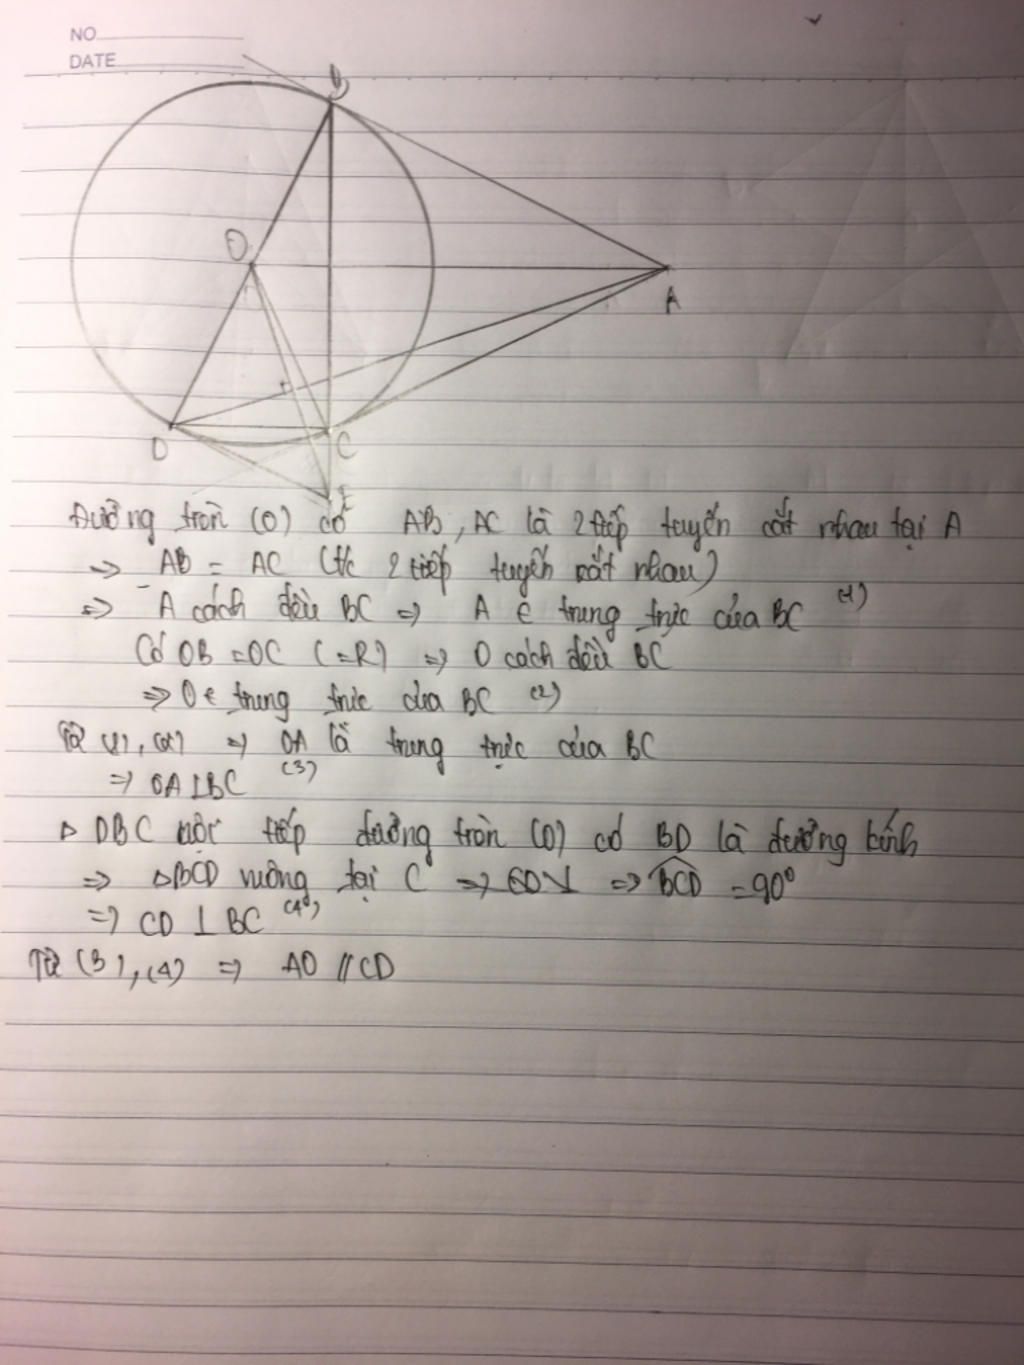 NO
DATE
B
O
A
D
C
E
Đường tròn (O) có AB, AC là 2 tiếp tuyến cắt nhau tại A
=> AB = AC (t/c 2 tiếp tuyến cắt nhau)
=> A cách đều BC => A ∈ trung trực của BC (1)
Có OB = OC (=R) => O cách đều BC
=> O ∈ trung trực của BC (2)
Từ (1), (2) => OA là trung trực của BC
=> OA ⊥ BC (3)
△ DBC nội tiếp đường tròn (O) có BD là đường kính
=> △BCD vuông tại C => BCD = 90°
=> CD ⊥ BC (4)
Từ (3), (4) => AO // CD